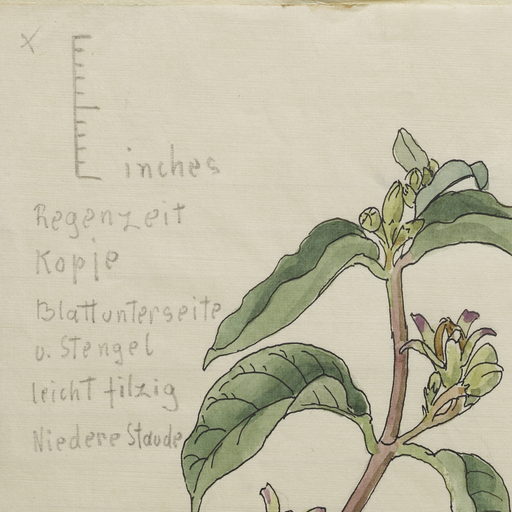 x
inches
Regenzeit
Kopje
Blattunterseite
u. Stengel
leicht filzig
Niedere Staude